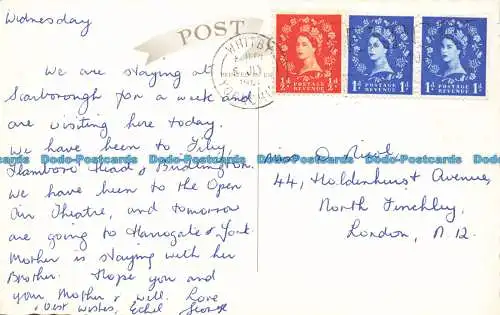 Wednesday
POST
WHITBY
We are staying at
Scarborough for a week and
are visiting here today.
We have been to Filey,
Flamboro Head & Bridlington.
We have been to the Open
Air Theatre, and tomorrow
are going to Harrogate & York.
Mother is staying with her
Brother. Hope you and
your Mother well. Love
& best wishes, Ethel George
½d POSTAGE REVENUE ½d
1d POSTAGE REVENUE 1d
1d POSTAGE REVENUE 1d
Miss D.
44, Holdenhurst Avenue,
North Finchley,
London, N.12.
Dodo-Postcards Dodo-Postcards Dodo-Postcards Dodo-Postcards